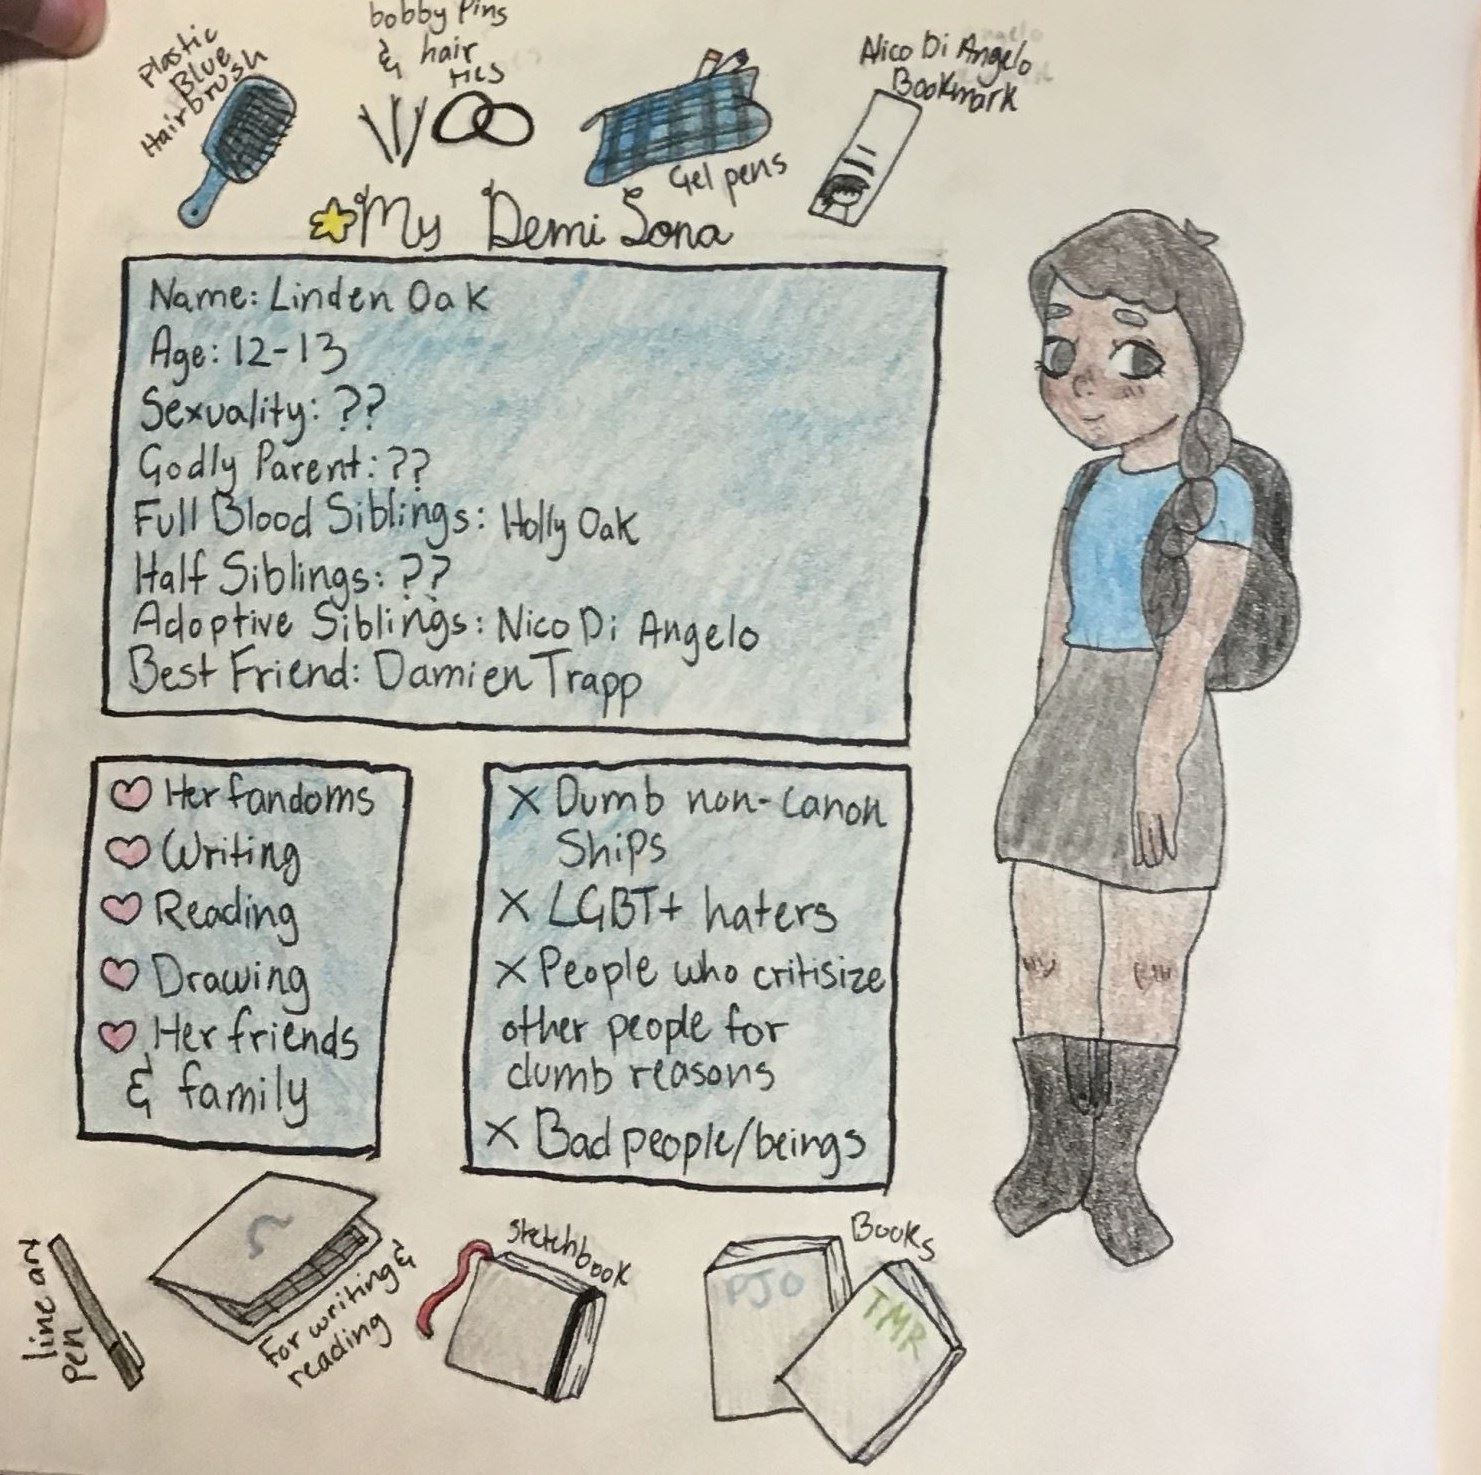 Plastic
Blue
Hairbrush
bobby Pins
& hair
ties
Gel pens
Nico Di Angelo
Bookmark
My Demi Sona
Name: Linden Oak
Age: 12-13
Sexuality: ??
Godly Parent: ??
Full Blood Siblings: Holly Oak
Half Siblings: ??
Adoptive Siblings: Nico Di Angelo
Best Friend: Damien Trapp
Her fandoms
Writing
Reading
Drawing
Her friends
& family
X Dumb non-canon
Ships
X LGBT+ haters
X People who critisize
other people for
dumb reasons
X Bad people/beings
line art
pen
For writing &
reading
Sketchbook
Books
PJO
TMR